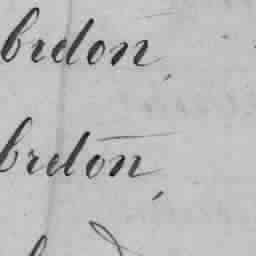 bredon̄
bredon̄,